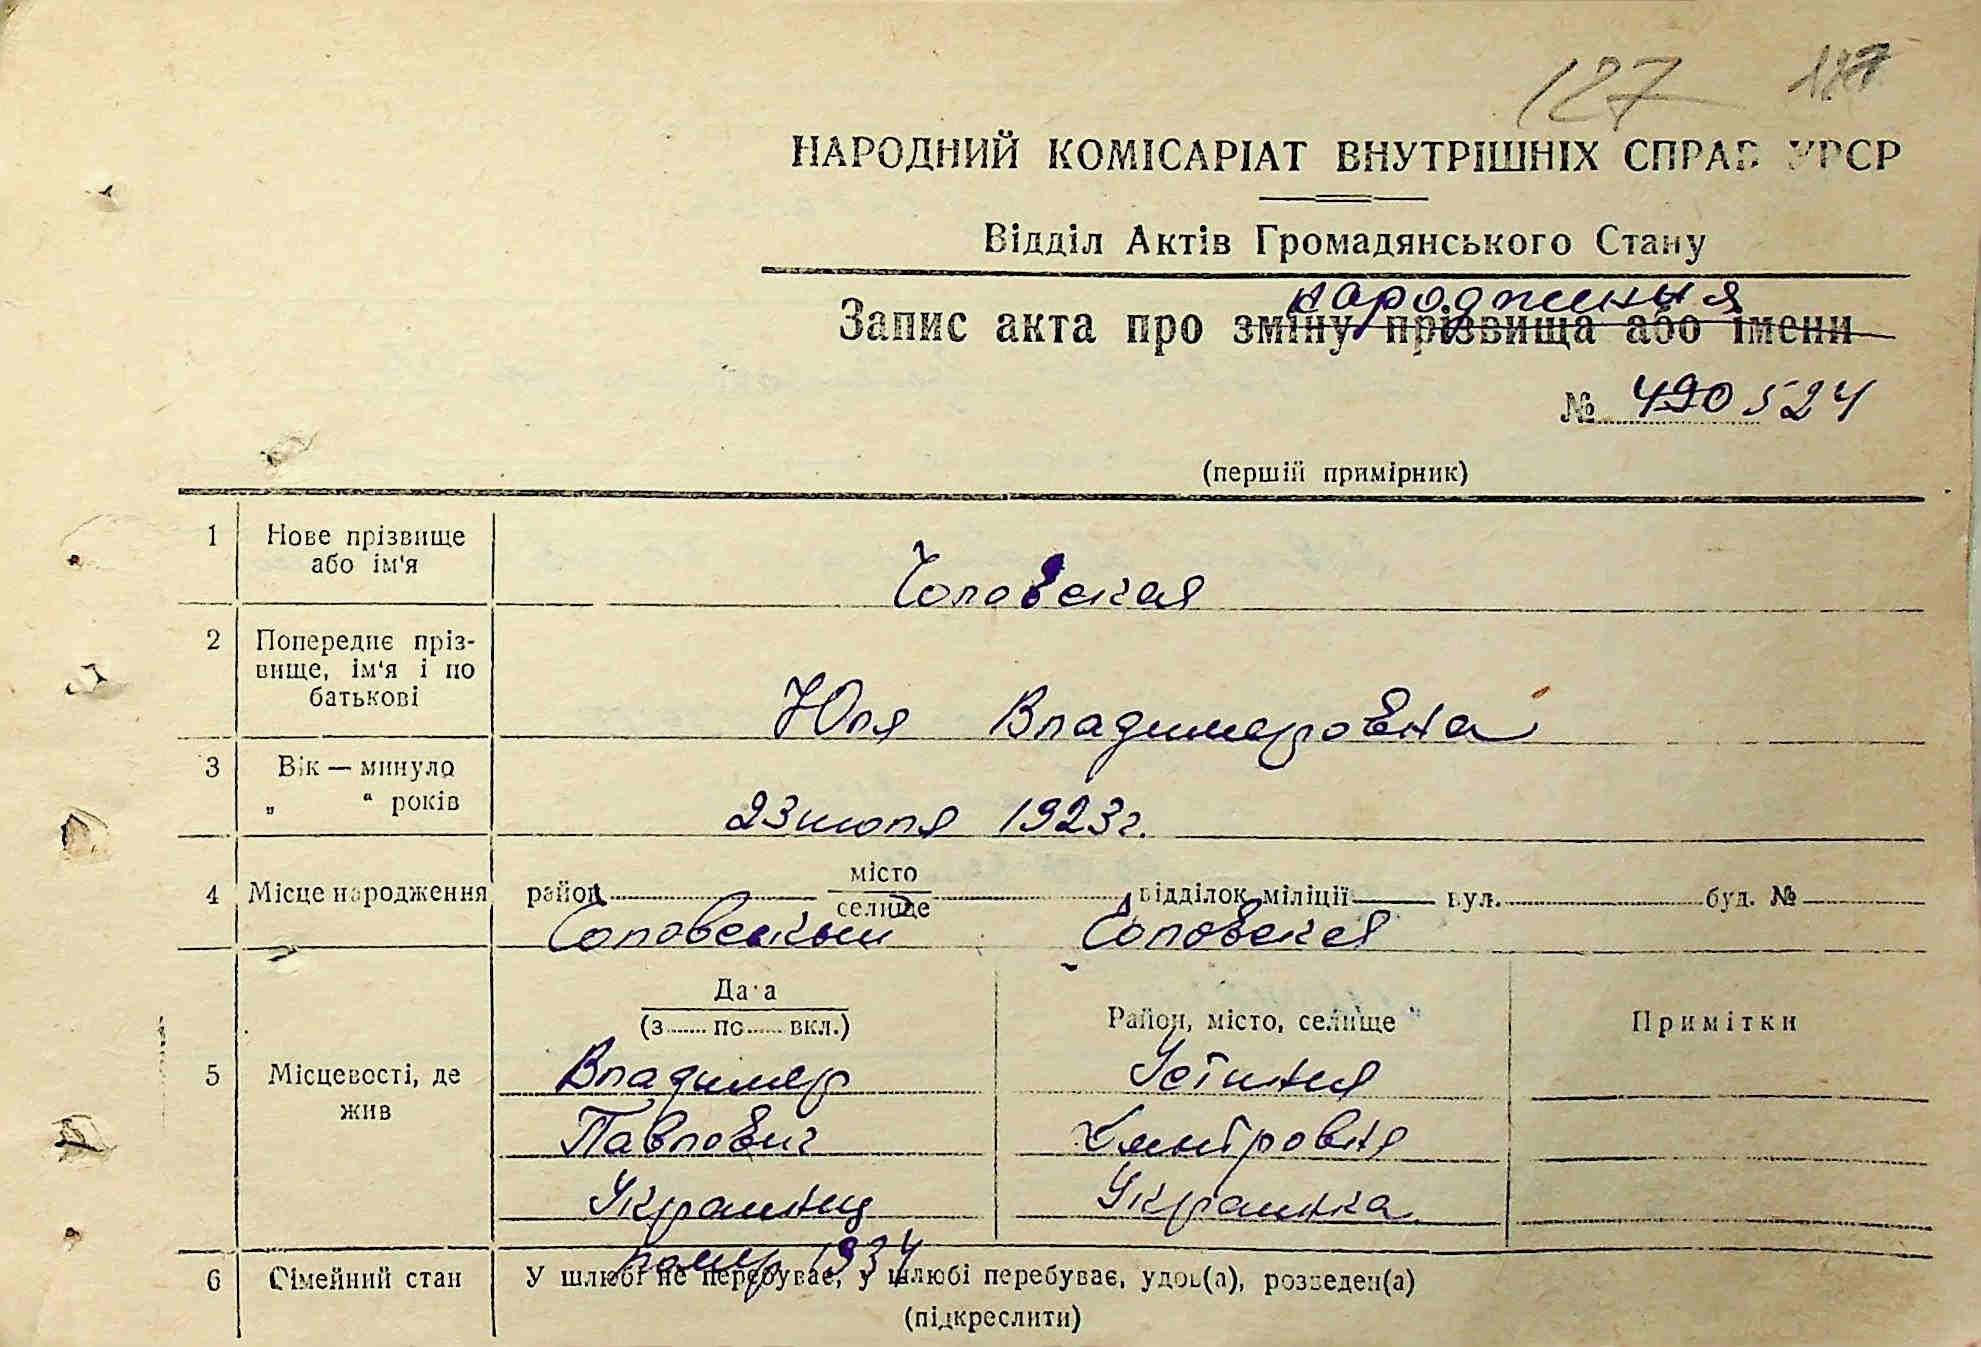 127 127
НАРОДНИЙ КОМІСАРІАТ ВНУТРІШНІХ СПРАВ УРСР
Відділ Актів Громадянського Стану
народжиния
Запис акта про зміну прізвища або імени
№ 490 524
(першій примірник)
1 Нове прізвище або ім'я
Соловская
2 Попереднє пріз-
вище, ім'я і по
батькові
Юля Владимеровна
3 Вік — минуло
„ “ років
23 июля 1923 г.
4 Місце народження район місто селище відділок міліції вул. буд. №
Соловский Соловская
Дата
(з...... по...... вкл.) Район, місто, селище Примітки
5 Місцевості, де
жив
Владимер Устиния
Павлович Дмитровня
Украинц Украинка
помер 1934
6 Сімейний стан У шлюбі не перебуває, у шлюбі перебуває, удов(а), розведен(а)
(підкреслити)